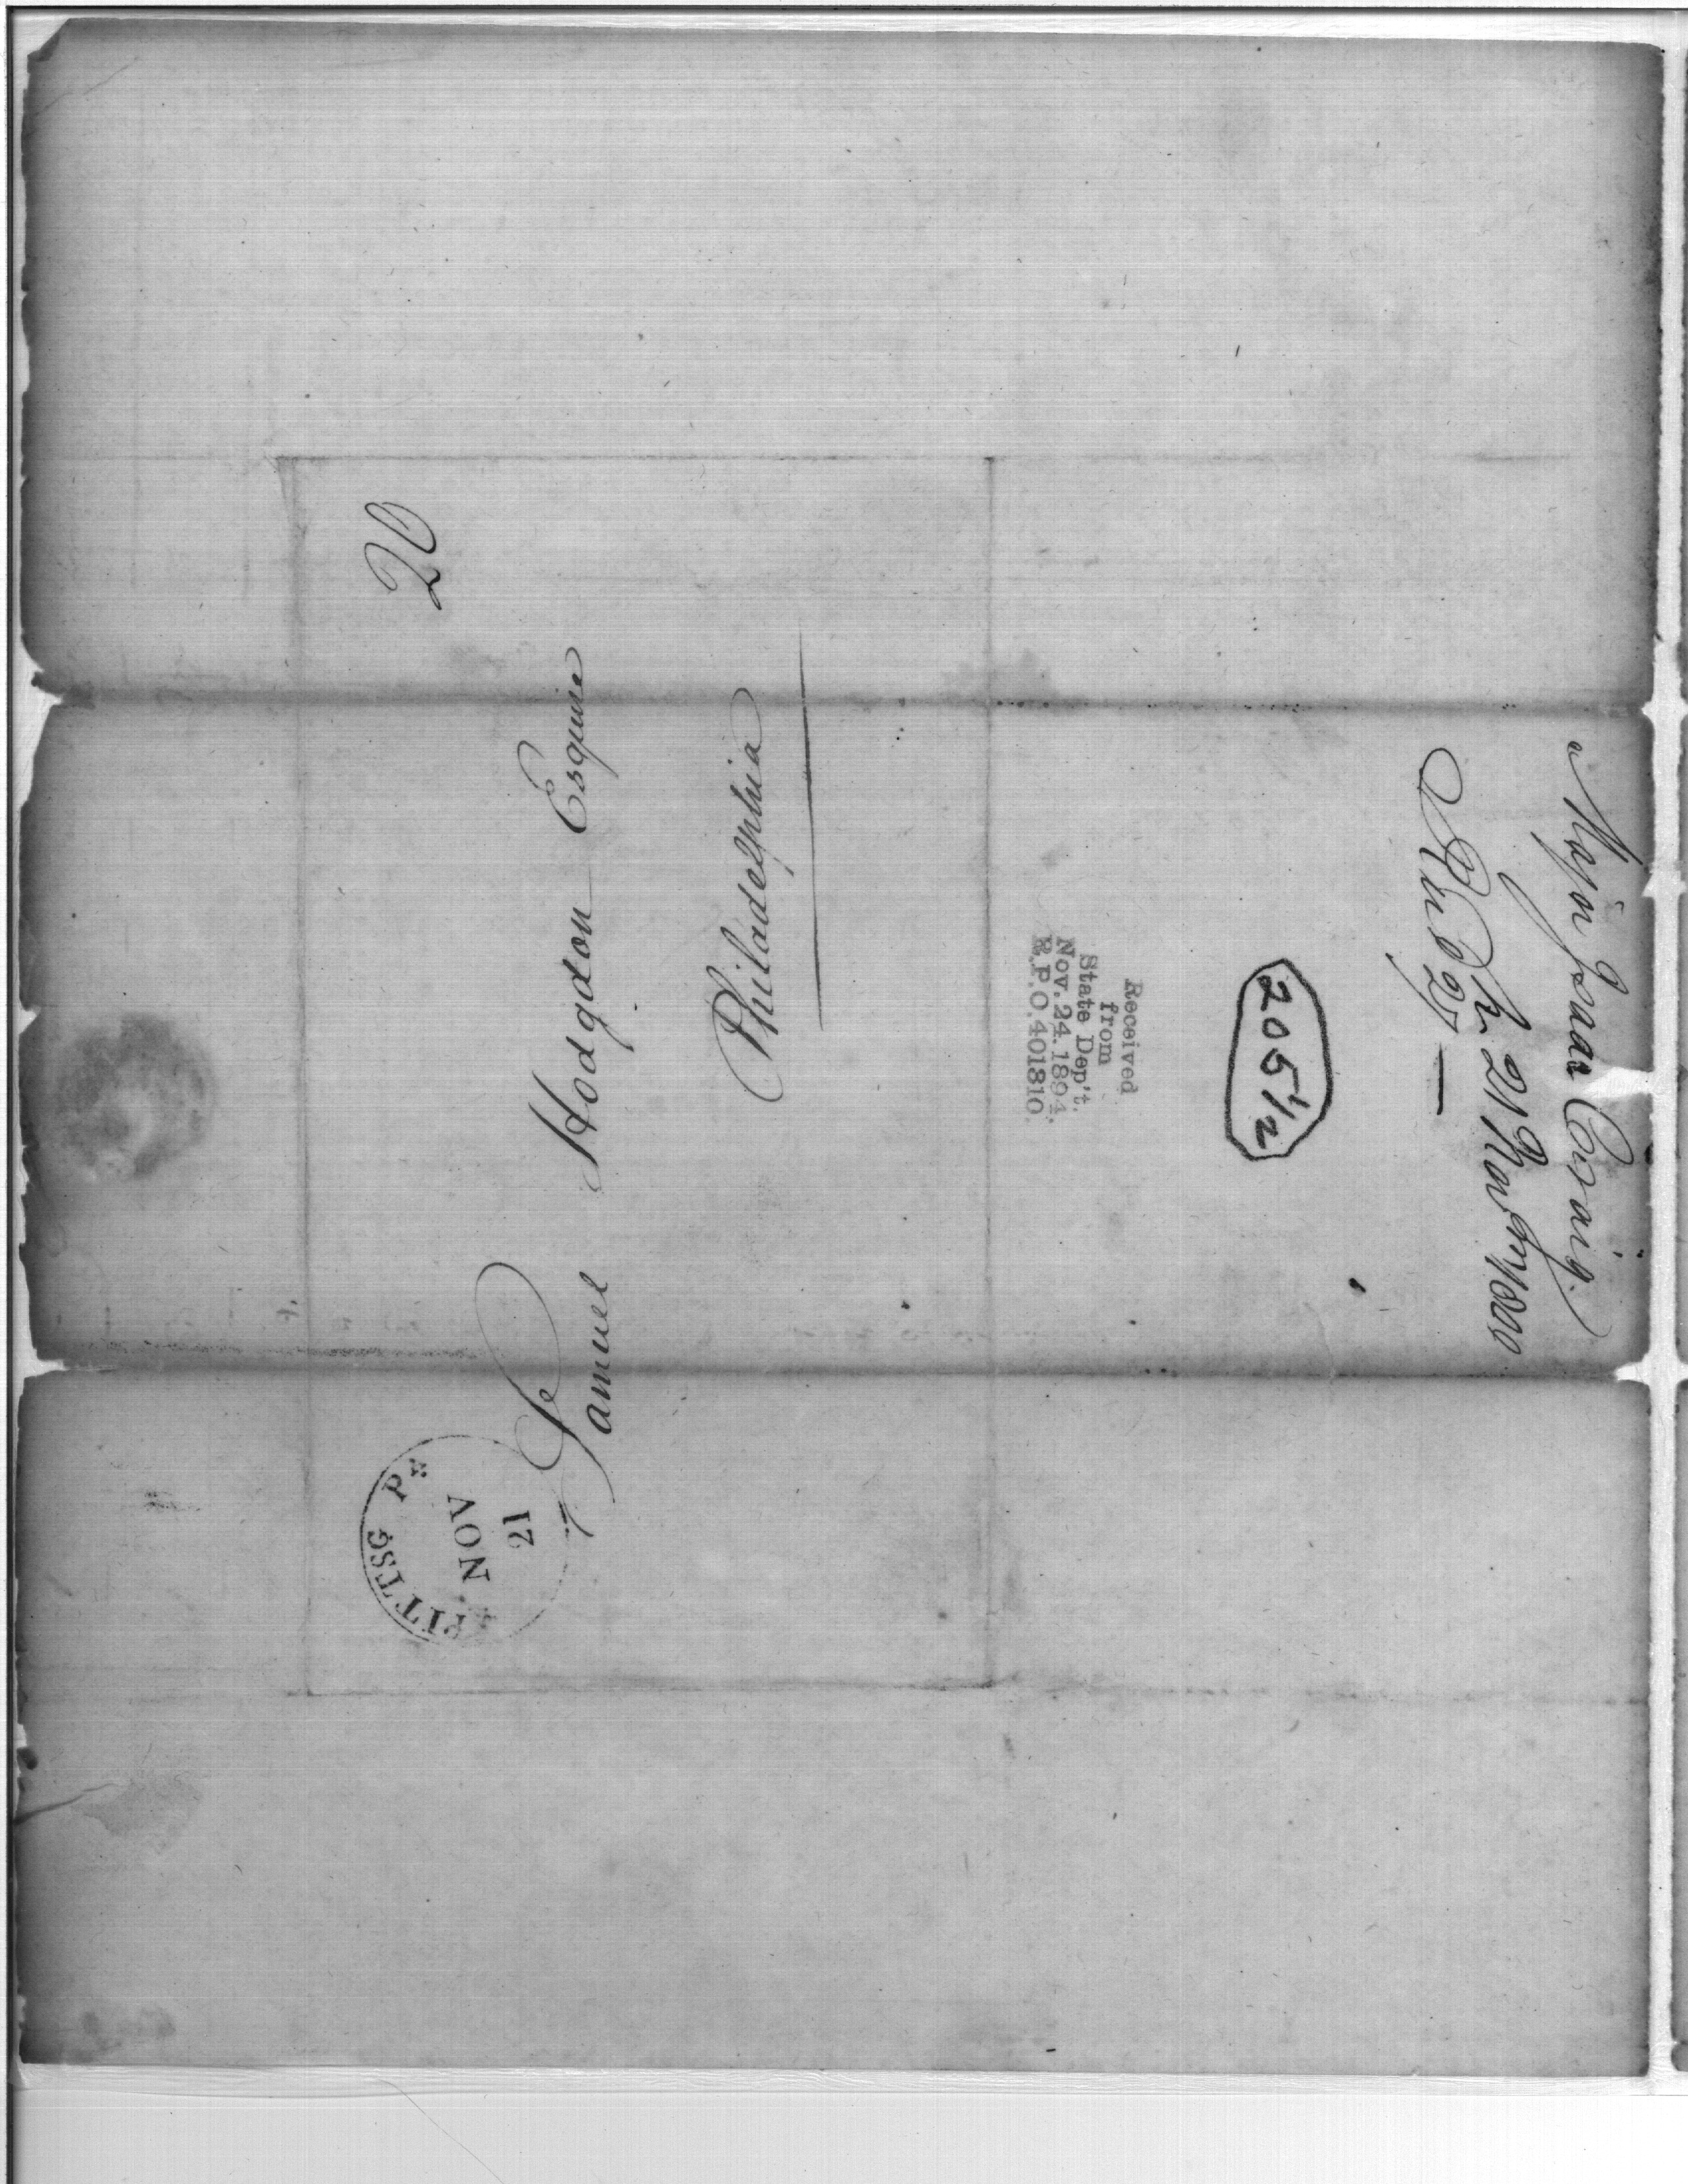 20
PITTSG PA
NOV
21
Samuel Hodgdon Esquire
Philadelphia
Major Isaac Craig.
21 Nov 1800
205½
Received
from
State Dep't.
Nov. 24. 1894.
R.P.O. 401810.